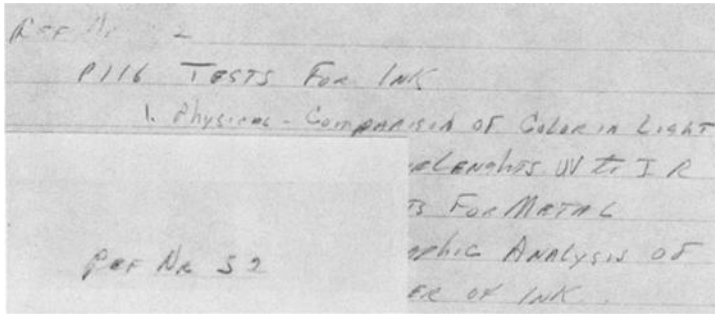 Ref Nr 2
P116 Tests For Ink
1. Physical - Comparison of Color in Light
elenghts UV to I R
ts For Metal
aphic Analysis of
Ref Nr 52
er of Ink.